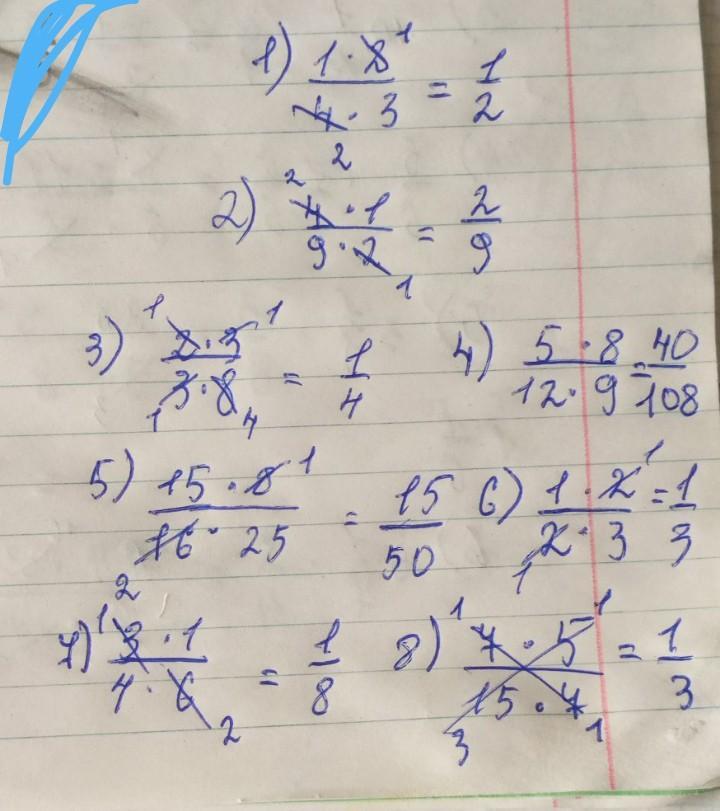 1) 1 · 2 1 / 4 · 3 2 = 1/2
2) 2 4 · 1 / 9 · 2 1 = 2/9
3) 1 2 · 3 1 / 1 3 · 8 4 = 1/4 4) 5 · 8 / 12 · 9 = 40/108
5) 15 · 8 1 / 16 · 25 2 = 15/50 6) 1 · 2 1 / 2 · 3 1 = 1/3
7) 1 3 · 1 / 4 · 6 2 = 1/8 8) 1 7 · 5 1 / 15 · 7 3 1 = 1/3